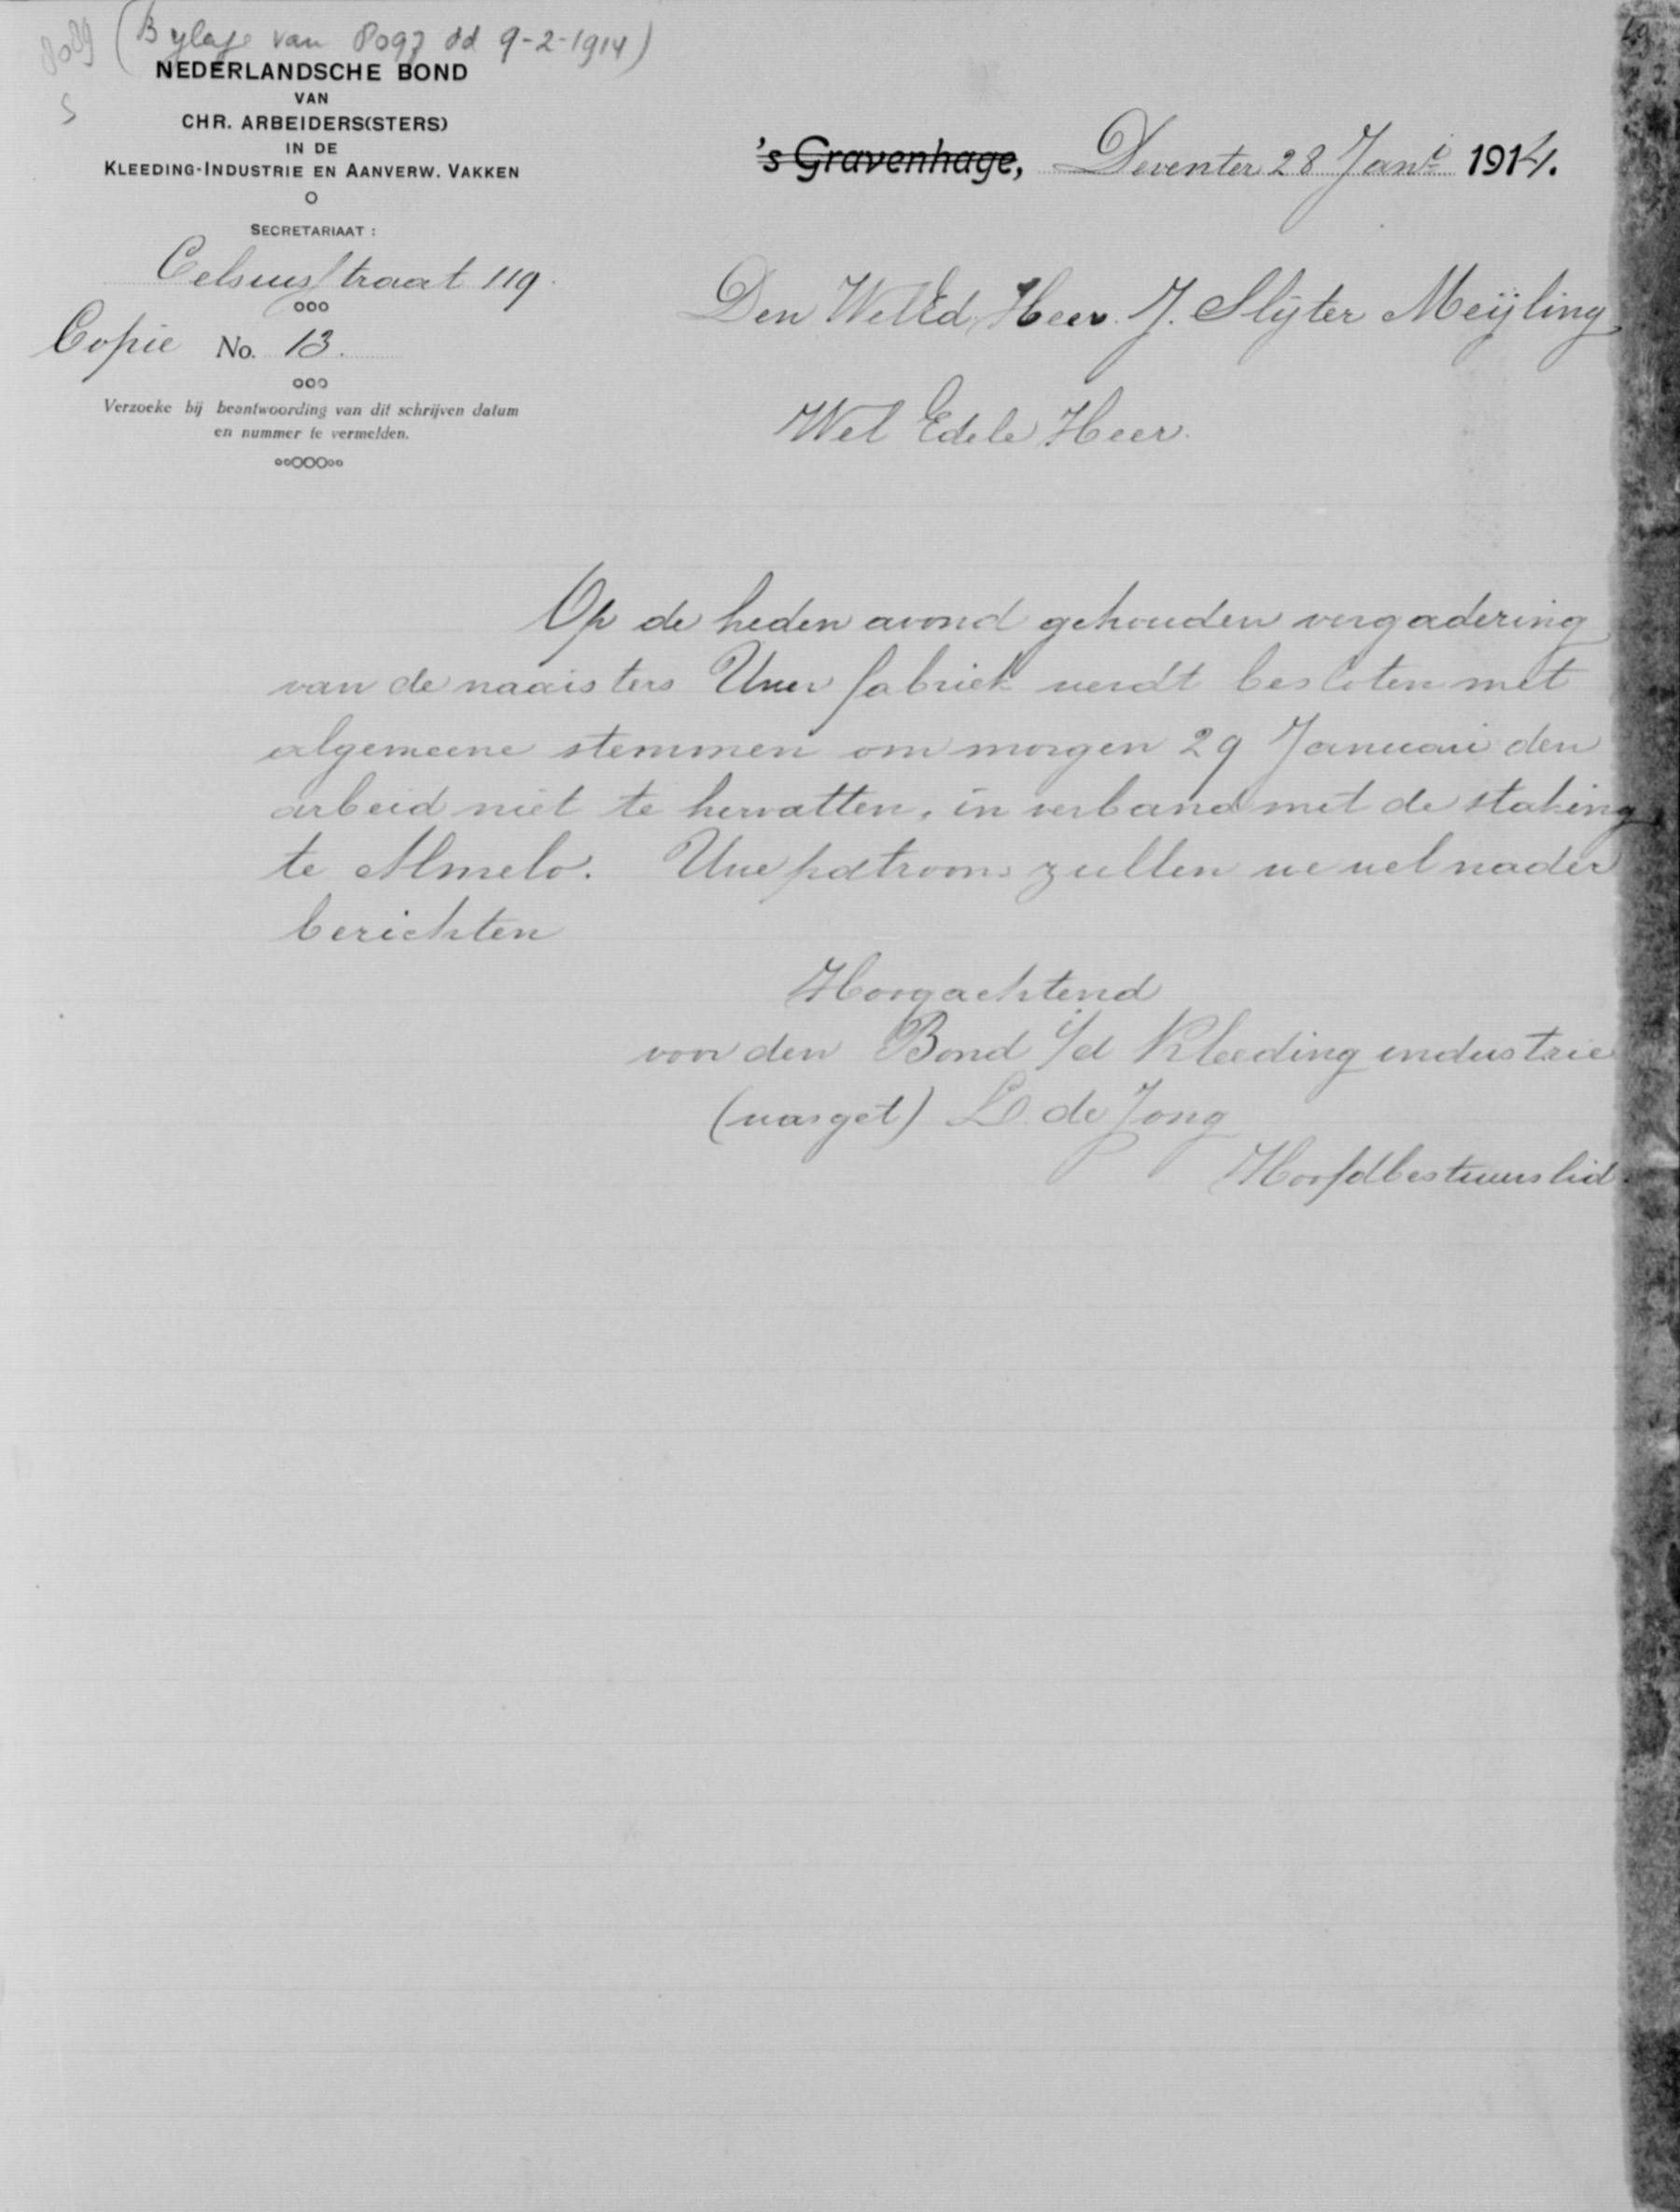 (Bylage van Pogz dd 9-2-1914)
NEDERLANDSCHE BOND
VAN
CHR. ARBEIDERS(STERS)
IN DE
KLEEDING-INDUSTRIE EN AANVERW. VAKKEN
SECRETARIAAT :
Celsiusstraat 119.
Copie No. 13.
Verzoeke bij beantwoording van dit schrijven datum
en nummer te vermelden.
's Gravenhage, Deventer 28 Jan.i 1914.
Den WelEd. Heer. J. Slyter Meÿling
Wel Edele Heer.
Op de heden avond gehouden vergadering
van de naaisters Uwer fabriek werdt besloten met
algemeene stemmen om morgen 29 Januari den
arbeid niet te hervatten, in verband met de staking
te Almelo. Uwe patroons zullen we wel nader
berichten
Hoogachtend
voor den Bond i/d Kleeding industrie
(was get) L. de Jong
Hoofdbestuurslid.